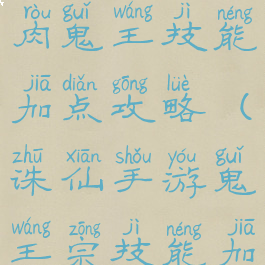 ròu guǐ wáng jì néng
肉鬼王技能
jiā diǎn gōng lüè
加点攻略（
zhū xiān shǒu yóu guǐ
诛仙手游鬼
wáng zōng jì néng jiā
王宗技能加